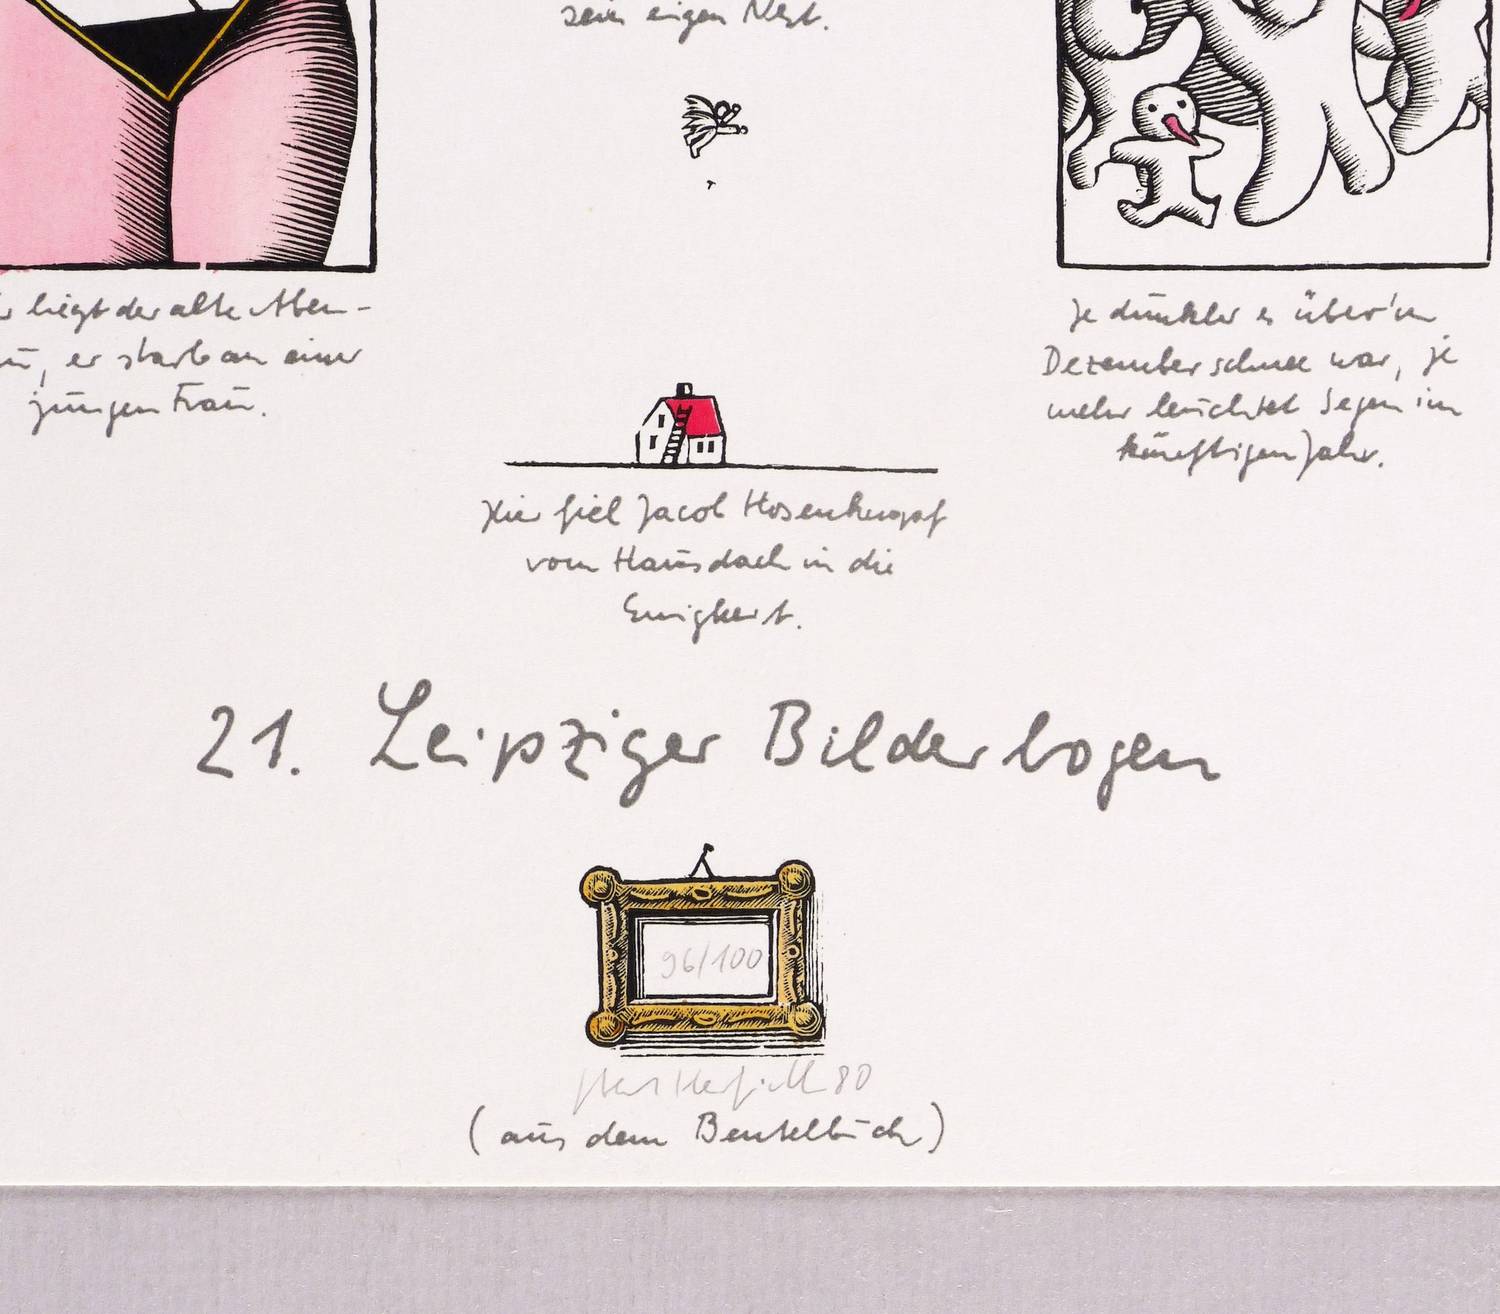 sein eigen Nest.
liegt der alte Aben-
er starb an einer
jungen Frau.
Je dunkler es über'm
Dezemberschnee war, je
mehr leuchtet Segen im
künftigen Jahr.
Hier fiel Jacob Hosenknopf
vom Hausdach in die
Ewigkeit.
21. Leipziger Bilderbogen
96/100
80
(aus dem Beutelbuch)